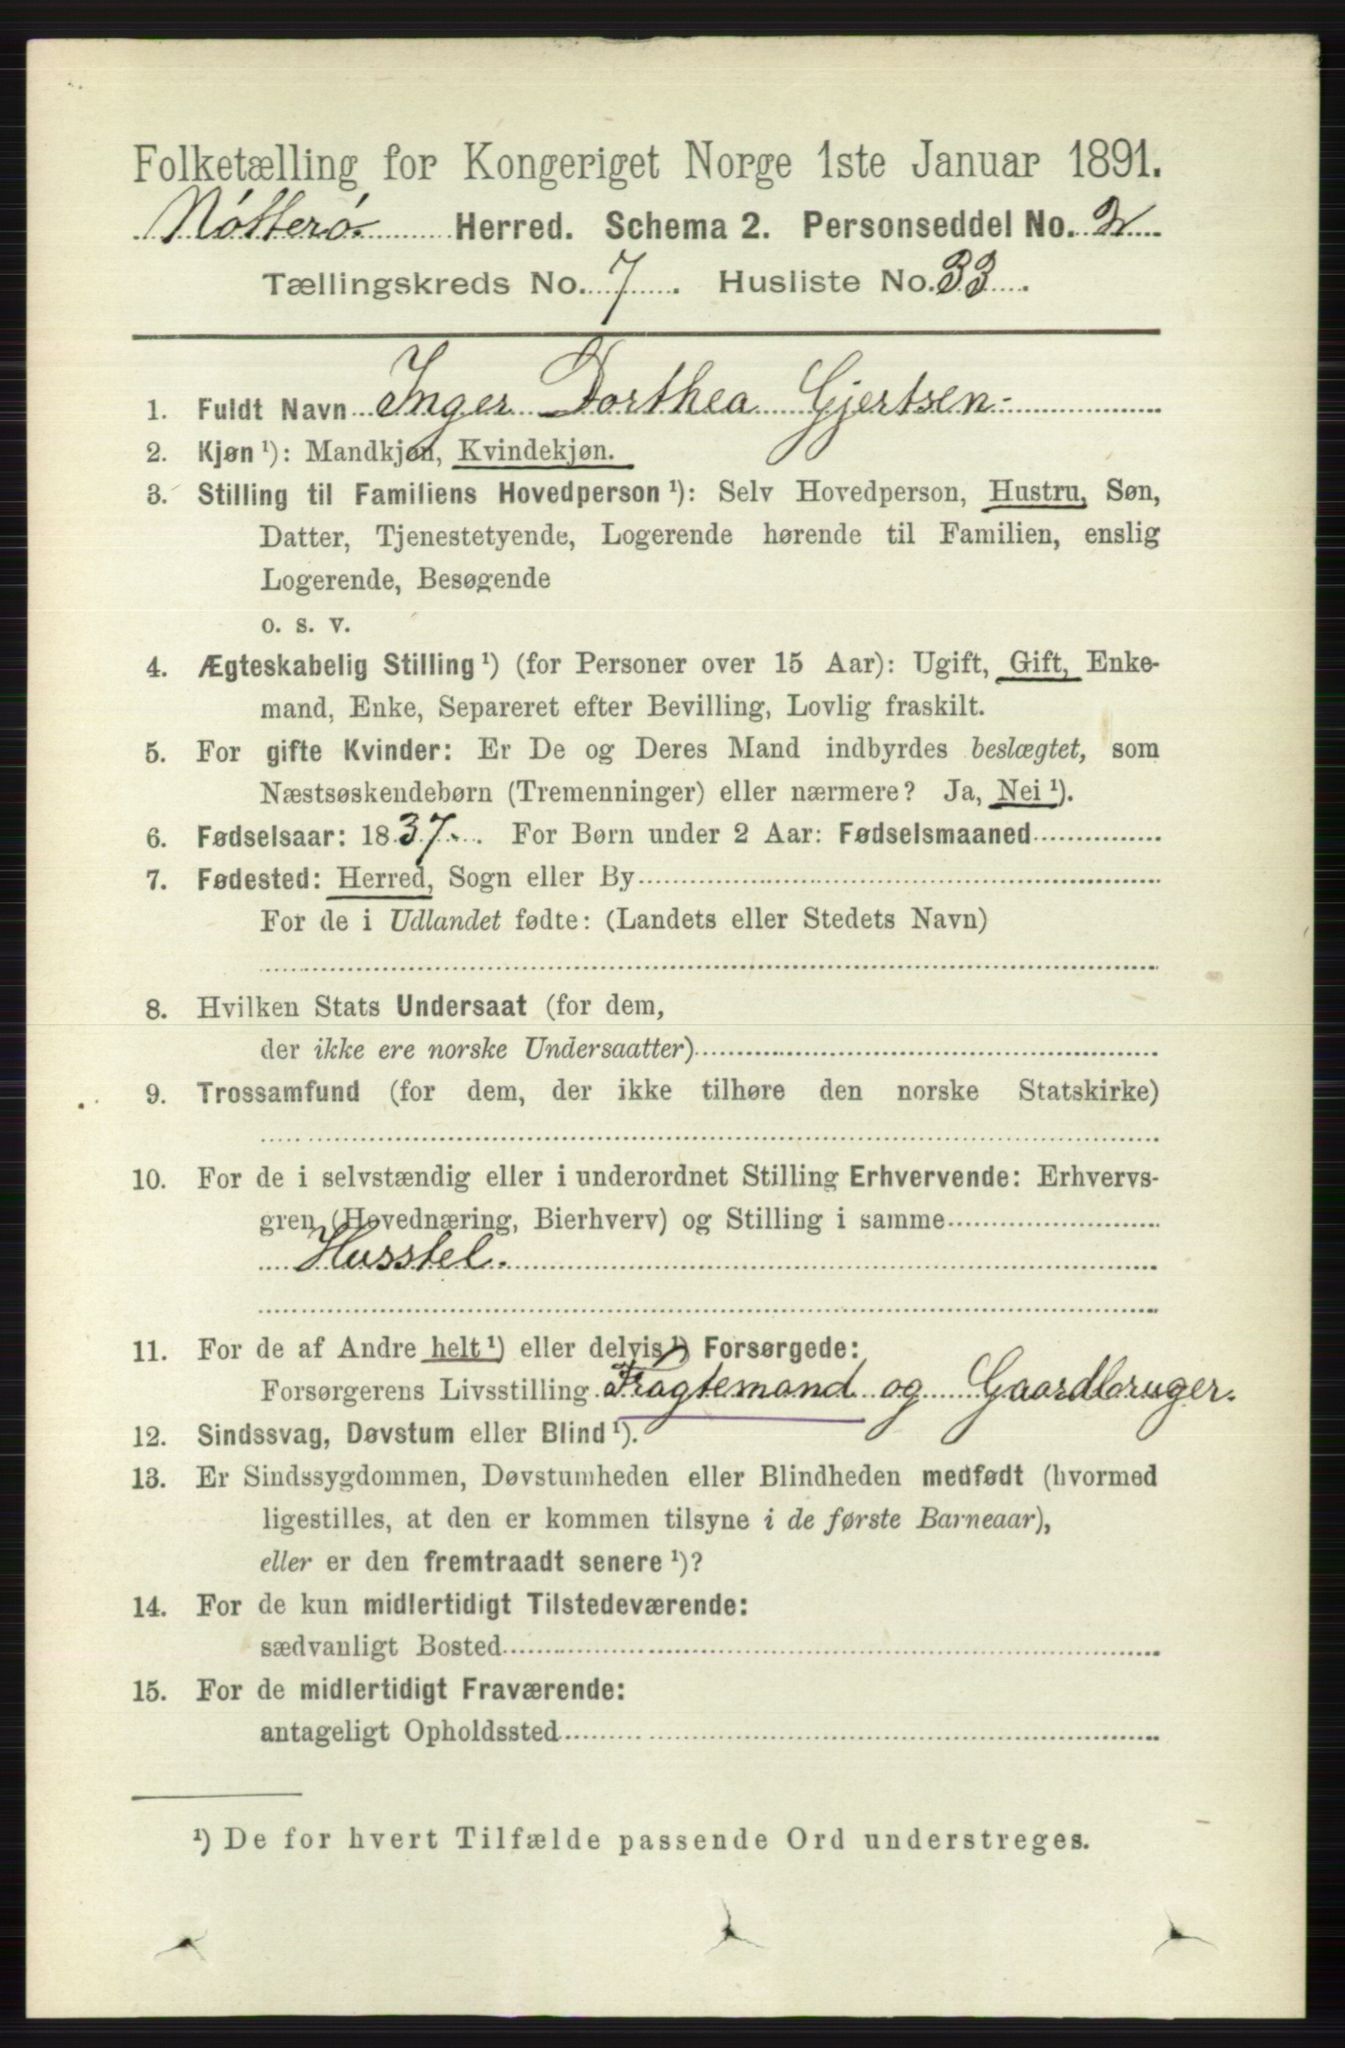 Folketælling for Kongeriget Norge 1ste Januar 1891.
Nötterö Herred. Schema 2. Personseddel No. 2
Tællingskreds No. 7. Husliste No. 33.
1. Fuldt Navn Inger Dorthea Gjertsen
2. Kjøn ¹): Mandkjøn, Kvindekjøn.
3. Stilling til Familiens Hovedperson ¹): Selv Hovedperson, Hustru, Søn,
Datter, Tjenestetyende, Logerende hørende til Familien, enslig
Logerende, Besøgende
o. s. v.
4. Ægteskabelig Stilling ¹) (for Personer over 15 Aar): Ugift, Gift, Enke-
mand, Enke, Separeret efter Bevilling, Lovlig fraskilt.
5. For gifte Kvinder: Er De og Deres Mand indbyrdes beslægtet, som
Næstsøskendebørn (Tremenninger) eller nærmere? Ja, Nei ¹).
6. Fødselsaar: 1837. For Børn under 2 Aar: Fødselsmaaned
7. Fødested: Herred, Sogn eller By
For de i Udlandet fødte: (Landets eller Stedets Navn)
8. Hvilken Stats Undersaat (for dem,
der ikke ere norske Undersaatter)
9. Trossamfund (for dem, der ikke tilhøre den norske Statskirke)
10. For de i selvstændig eller i underordnet Stilling Erhvervende: Erhvervs-
gren (Hovednæring, Bierhverv) og Stilling i samme
Husstel.
11. For de af Andre helt ¹) eller delvis ¹) Forsørgede:
Forsørgerens Livsstilling Fragtemand og Gaardbruger.
12. Sindssvag, Døvstum eller Blind ¹).
13. Er Sindssygdommen, Døvstumheden eller Blindheden medfødt (hvormed
ligestilles, at den er kommen tilsyne i de første Barneaar),
eller er den fremtraadt senere ¹)?
14. For de kun midlertidigt Tilstedeværende:
sædvanligt Bosted
15. For de midlertidigt Fraværende:
antageligt Opholdssted
¹) De for hvert Tilfælde passende Ord understreges.